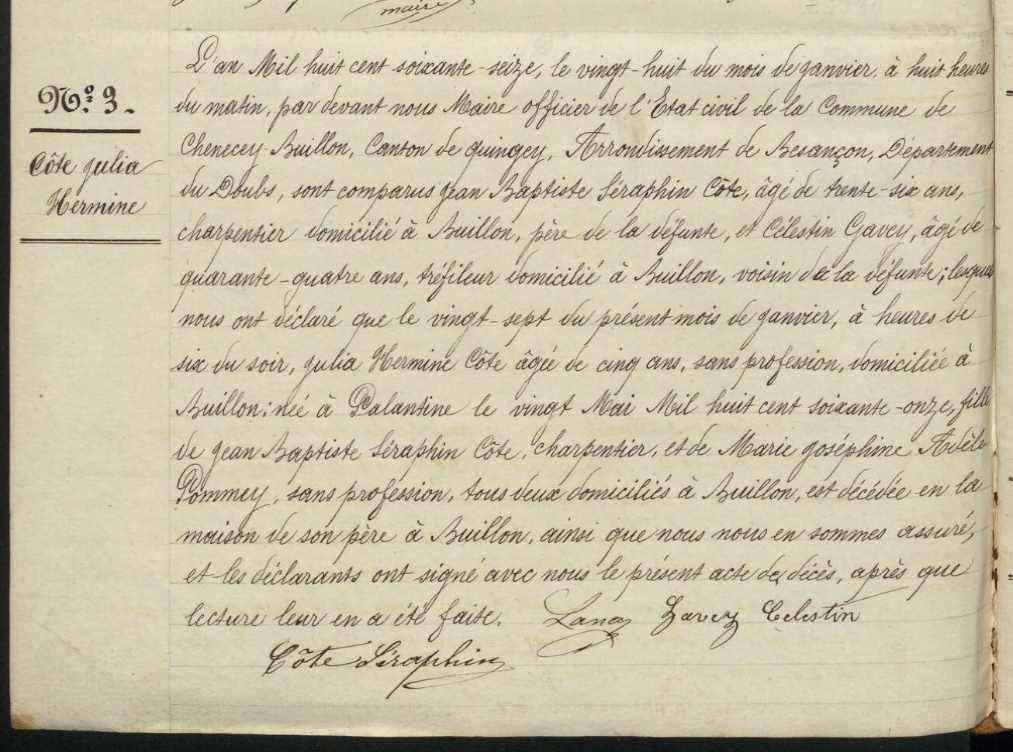 maire
N.o 3.
Côte Julia
Hermine
L'an Mil huit cent soixante-seize, le vingt-huit du mois de Janvier, à huit heures
du matin, par devant nous Maire officier de l'Etat civil de la Commune de
Chenecey-Buillon, Canton de Quingey, Arrondissement de Besançon, Département
du Doubs, sont comparus Jean Baptiste Séraphin Côte, âgé de trente-six ans,
charpentier domicilié à Buillon, père de la défunte, et Célestin Gavey, âgé de
quarante-quatre ans, tréfileur domicilié à Buillon, voisin de la défunte; lesquels
nous ont déclaré que le vingt-sept du présent mois de Janvier, à heures de
six du soir, Julia Hermine Côte âgée de cinq ans, sans profession, domiciliée à
Buillon; née à Palantine le vingt Mai Mil huit cent soixante-onze, fille
de Jean Baptiste Séraphin Côte, charpentier, et de Marie Joséphine Adèle
Pommey, sans profession, tous deux domiciliés à Buillon, est décédée en la
maison de son père à Buillon, ainsi que nous nous en sommes assuré,
et les déclarants ont signé avec nous le présent acte de décès, après que
lecture leur en a été faite. Gavey Celestin
Côte Séraphin